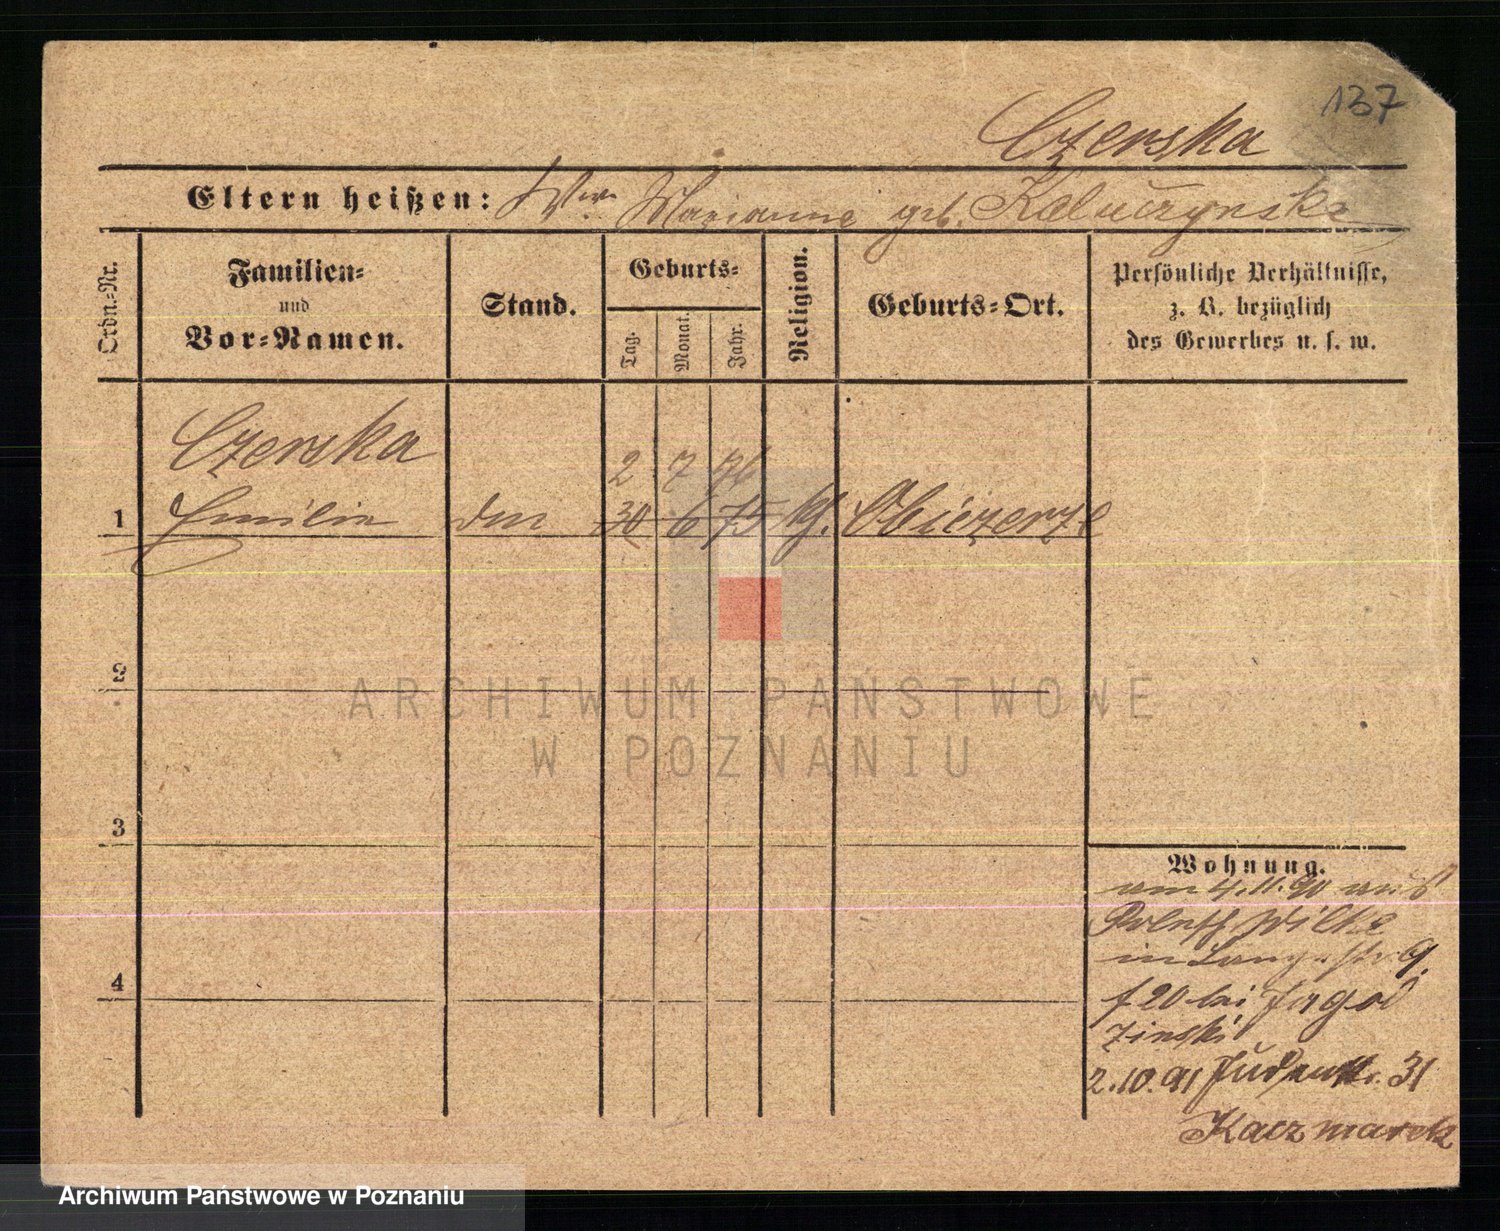 137
Czerska
Eltern heißen: Wwe Marianne geb. Kaluczynska
Ordn.-Nr.
Familien-
und
Vor-Namen.
Stand.
Geburts-
Tag.
Monat.
Jahr.
Religion.
Geburts-Ort.
Persönliche Verhältnisse,
z. B. bezüglich
des Gewerbes u. s. w.
Czerska
2 7 76
1 Emilie 30 6 75 kg. Obiezerze
2
3
4
Wohnung.
am 4.11.90 aus
Wilke
in Lange str 9.
f 90 bei Jagod
zinski
2.10.91 Judenstr. 31
Kaczmarek
ARCHIWUM PAŃSTWOWE
W POZNANIU
Archiwum Państwowe w Poznaniu